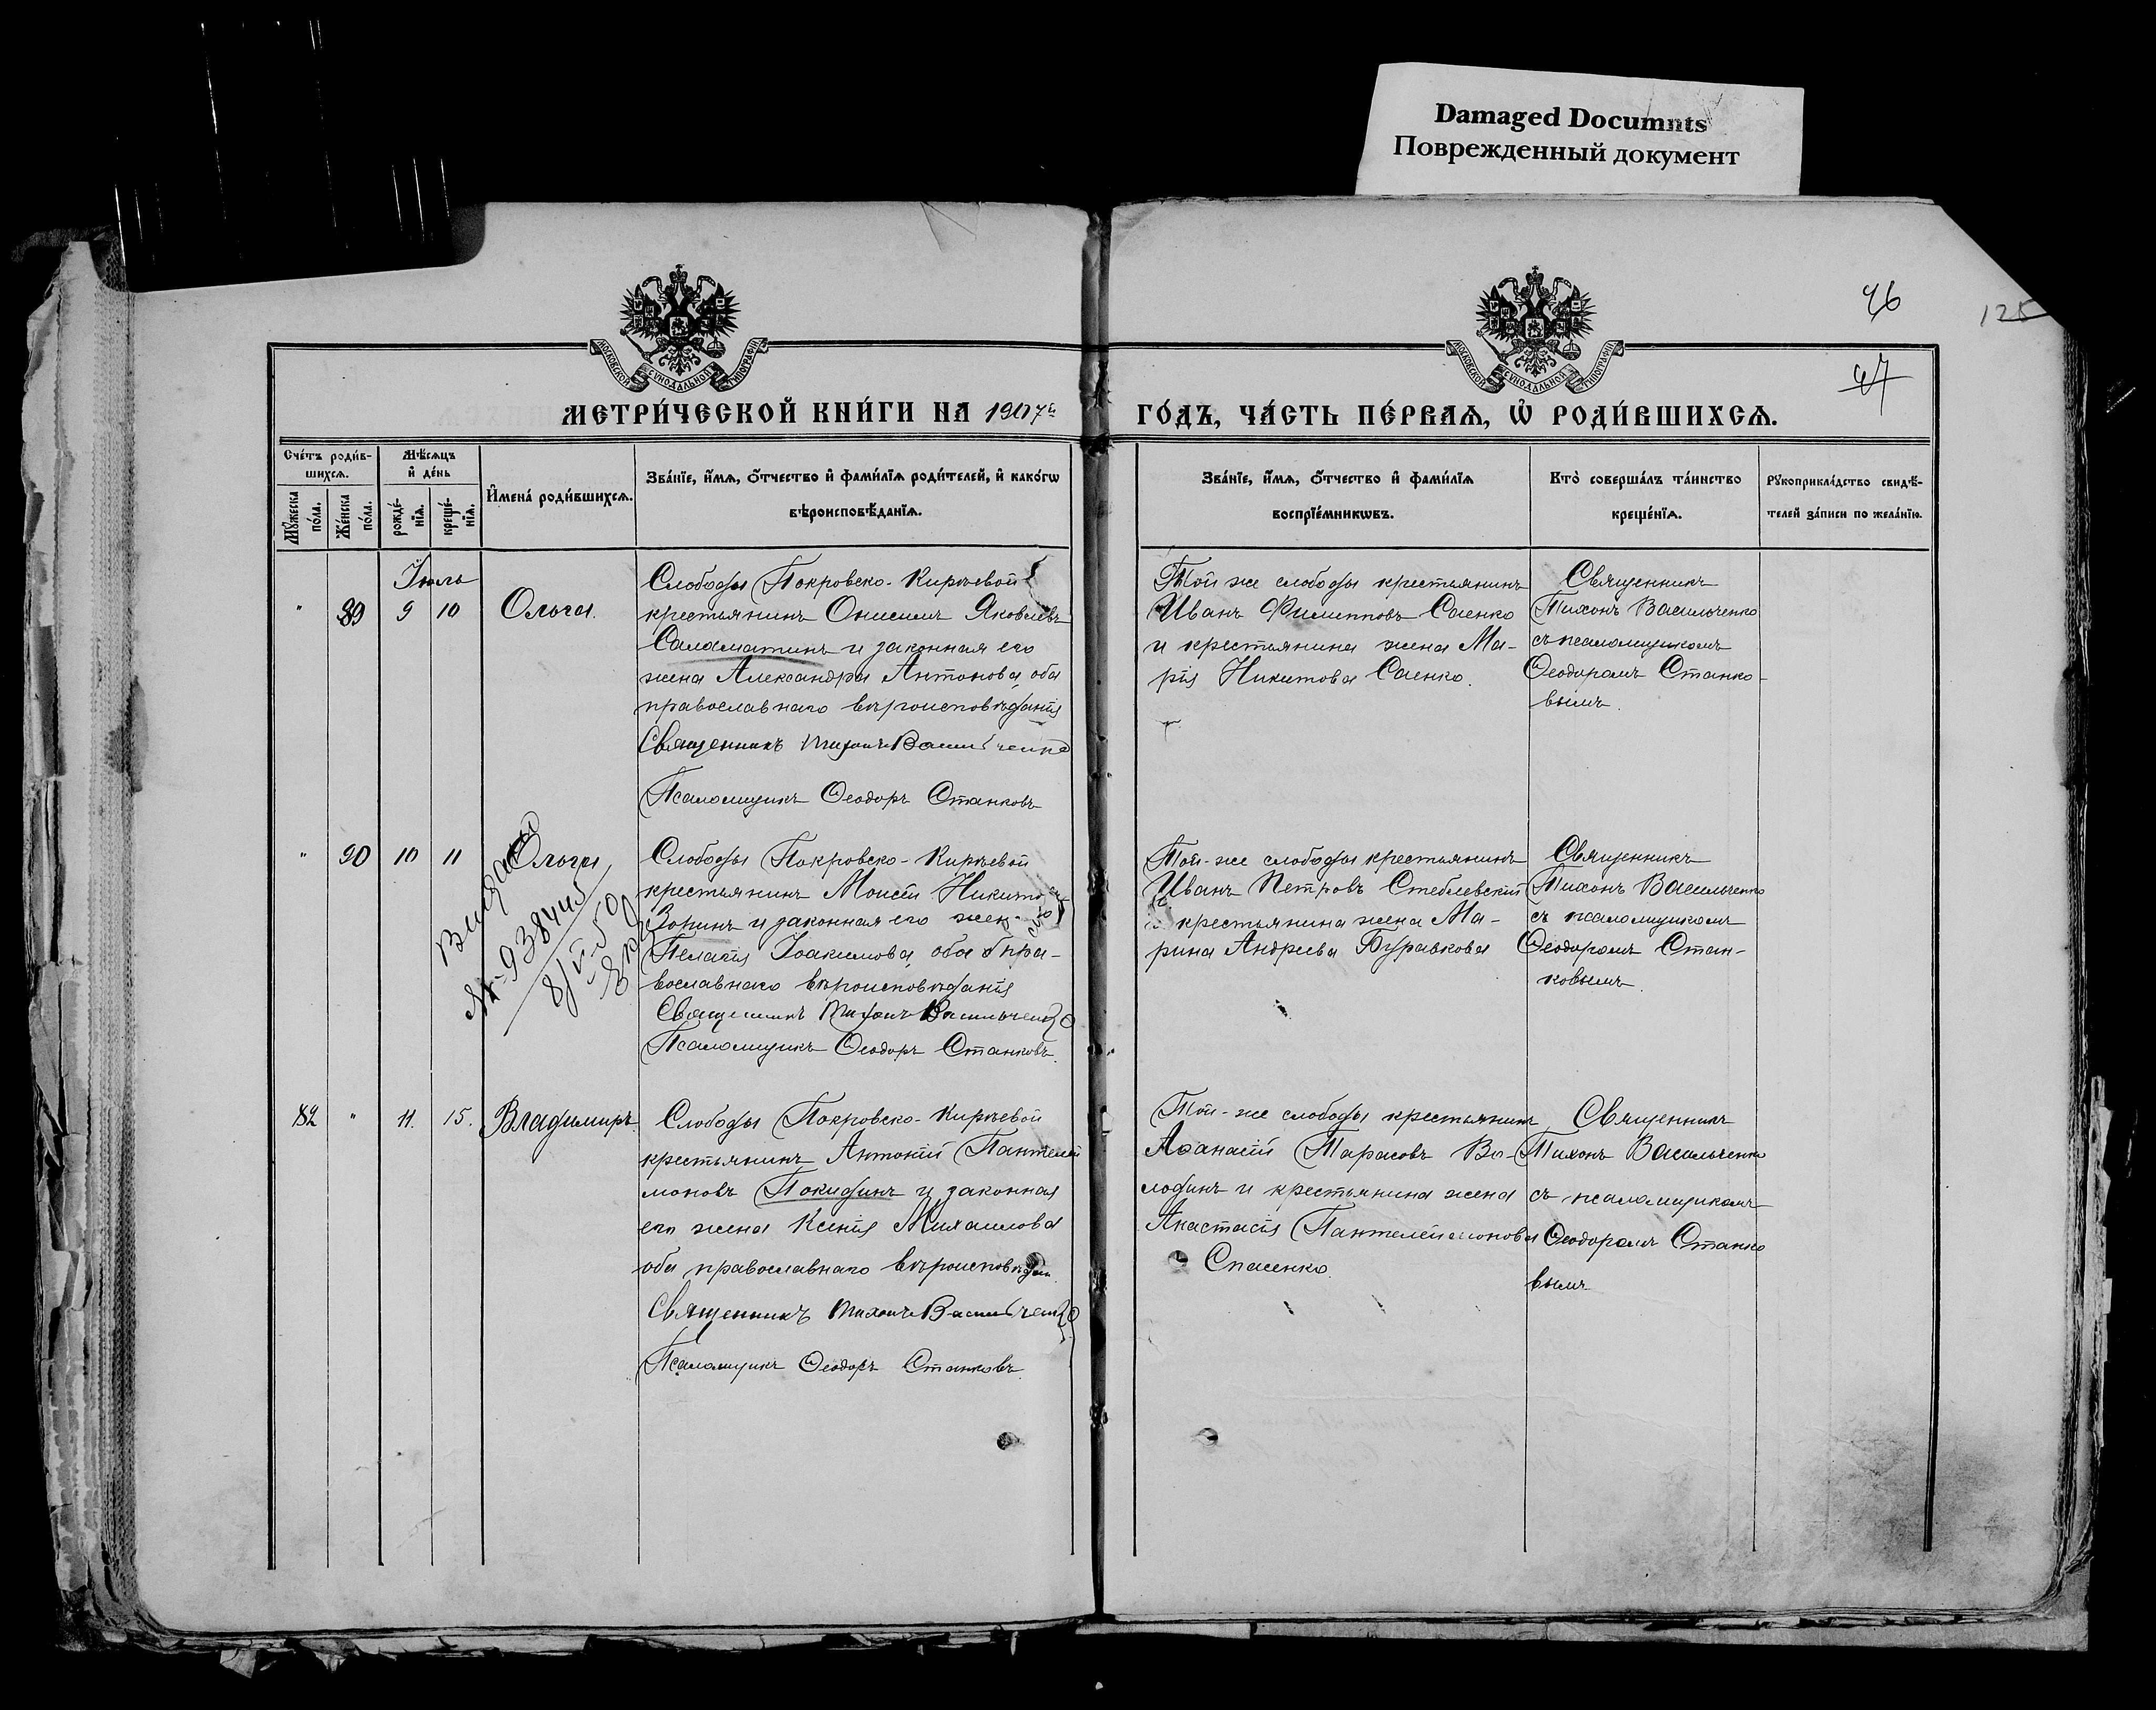 Damaged Documnts
Поврежденный документ
46
125
47
МОСКОВСКОЙ СУНОДАЛЬНОЙ ТИПОГРАФІИ
МОСКОВСКОЙ СУНОДАЛЬНОЙ ТИПОГРАФІИ
МЕТРИ́ЧЕСКОЙ КНИ́ГИ НА 1907й
ГО́ДЪ, ЧА́СТЬ ПЕ́РВАѦ, Ѡ҆ РОДИ́ВШИХСѦ.
Сче́тъ роди́в-
шихсѧ.
Мѣ́сѧцъ
и҆ де́нь
Мꙋ́жеска
по́ла.
Же́нска
по́ла.
рожде́-
нїѧ.
креще́-
нїѧ.
И҆мена̀ роди́вшихсѧ.
Зва́нїе, и҆́мѧ, ѻ҆́тчество и҆ фами́лїѧ роди́телей, и҆ како́гѡ
вѣроисповѣ́данїѧ.
Зва́нїе, и҆́мѧ, ѻ҆́тчество и҆ фами́лїѧ
воспрїе́мникѡвъ.
Кто̀ соверша́лъ та́инство
креще́нїѧ.
Рꙋкоприкла́дство свидѣ́-
телей за́писи по жела́нїю.
Іюль
" 89 9 10 Ольга.
Слободы Покровско-Киреевой
крестьянинъ Онисимъ Яковлевъ
Саламатинъ и законная его
жена Александра Антонова, оба
православнаго вѣроисповѣданія
Священникъ Тихонъ Васильченко
Псаломщикъ Ѳеодоръ Станковъ
Той же слободы крестьянинъ
Иванъ Филипповъ Саенко
и крестьянина жена Ма-
рія Никитова Саенко.
Священникъ
Тихонъ Васильченко
съ псаломщикомъ
Ѳеодоромъ Станко-
вымъ.
" 90 10 11 Ольга
Выдано
№-938445
8/VI-50
Слободы Покровско-Киреевой
крестьянинъ Моисей Никитовъ
Зонинъ и законная его жена
Пелагія Іоакимова, оба пра-
вославнаго вѣроисповѣданія
Священникъ Тихонъ Васильченко
Псаломщикъ Ѳеодоръ Станковъ.
Той-же слободы крестьянинъ
Иванъ Петровъ Стеблевскій
и крестьянина жена Ма-
рина Андреева Буравкова
Священникъ
Тихонъ Васильченко
съ псаломщикомъ
Ѳеодоромъ Стан-
ковымъ.
82 " 11. 15. Владимиръ.
Слободы Покровско-Киреевой
крестьянинъ Антоній Пантелей
моновъ Покидинъ и законная
его жена Ксенія Михаилова
оба православнаго вѣроисповѣдан.
Священникъ Тихонъ Васильченко
Псаломщикъ Ѳеодоръ Станковъ.
Той-же слободы крестьянинъ
Аѳанасій Тарасовъ Во-
лодинъ и крестьянина жена
Анастасія Пантелеймонова
Спасенко.
Священникъ
Тихонъ Васильченко
съ псаломщикомъ
Ѳеодоромъ Станко
вымъ